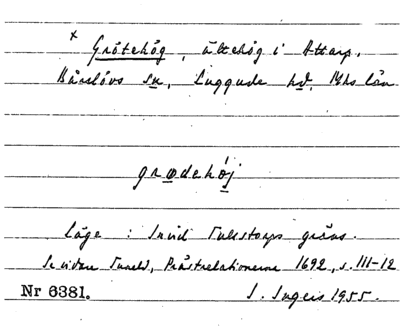 x Grötehög, ättehög i Attarp,
Bårslövs sn, Luggude hd, Mhs län
grødehöj
Läge : Invid Tulstorps gräns.
Se vidare Tuneld, Prästrelationerna 1692, s. III-12
Nr 6381. I. Ingers 1955.